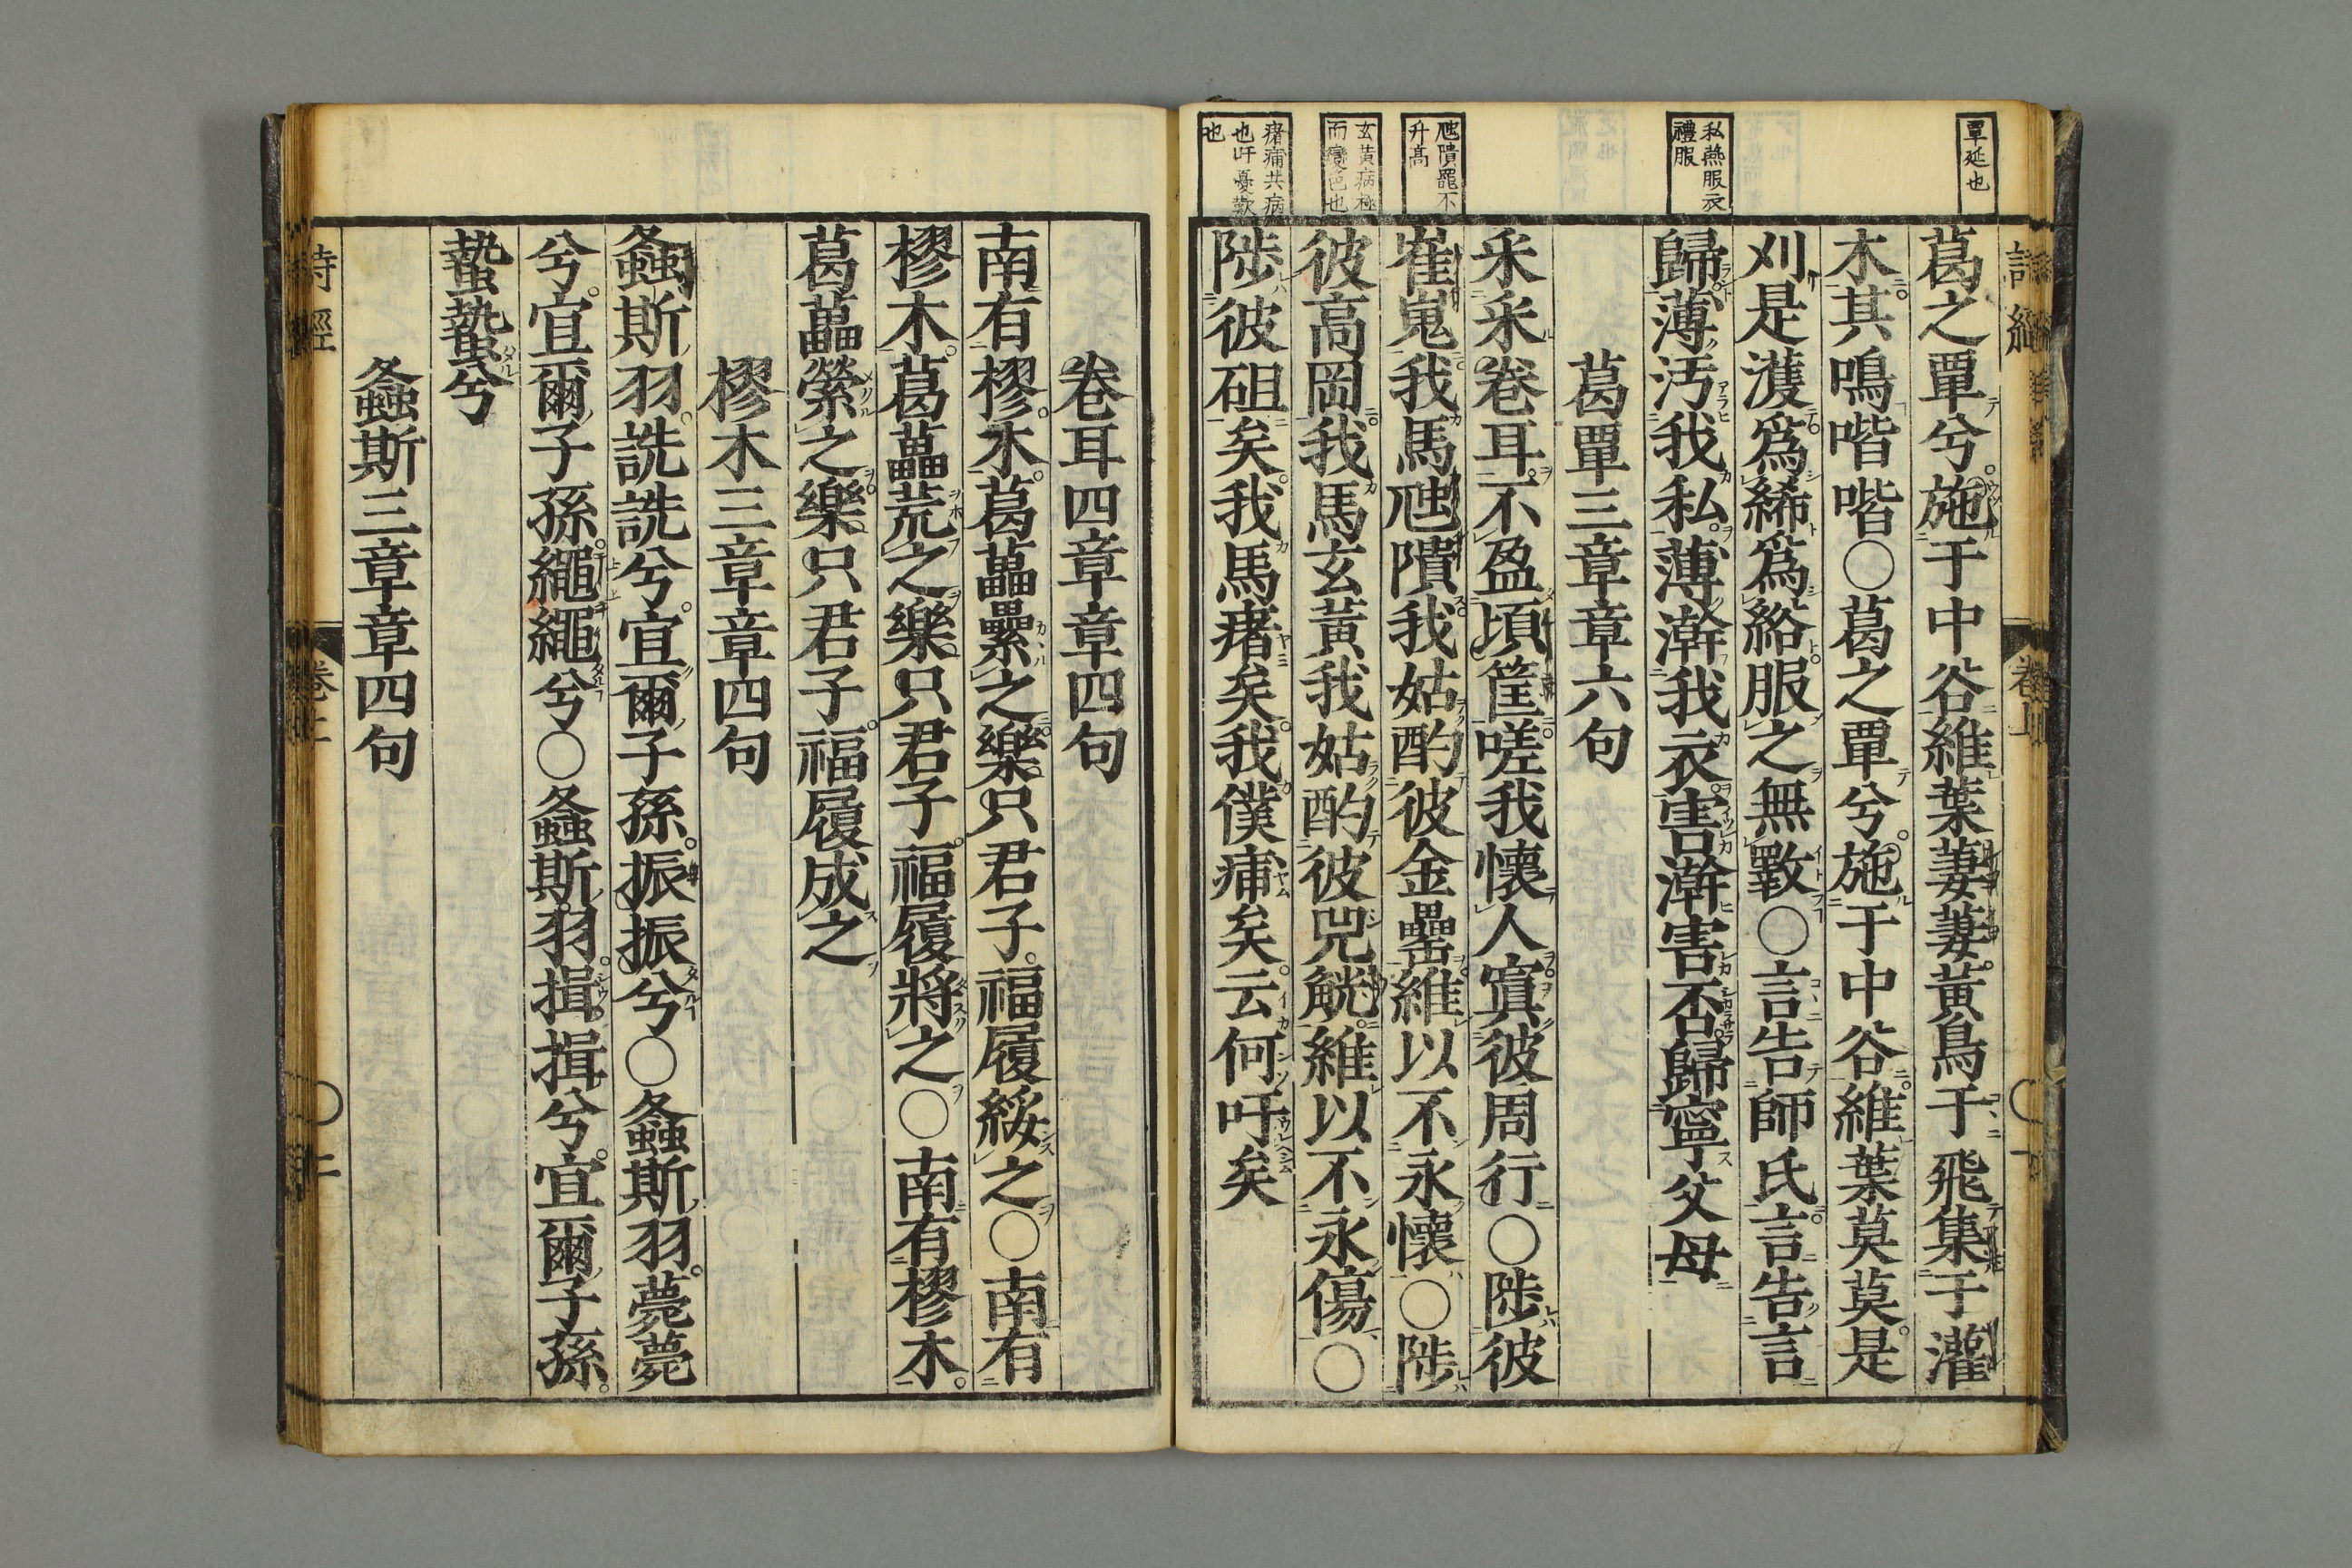 覃延也
私燕服衣
禮服
虺隤罷不
升高
玄黃病極
而變色也
瘏痡共病
也吁憂歎
也
葛之覃兮施于中谷維葉萋萋黃鳥于飛集于灌
木其鳴喈喈〇葛之覃兮施于中谷維葉莫莫是
刈是濩爲絺爲綌服之無斁〇言告師氏言告言
歸薄汚我私薄澣我衣害澣害否歸寧父母
葛覃三章章六句
采采卷耳不盈頃筐嗟我懷人寘彼周行〇陟彼
崔嵬我馬虺隤我姑酌彼金罍維以不永懷〇陟
彼高岡我馬玄黃我姑酌彼兕觥維以不永傷〇
陟彼砠矣我馬瘏矣我僕痡矣云何吁矣
卷耳四章章四句
南有樛木葛藟纍之樂只君子福履綏之〇南有
樛木葛藟荒之樂只君子福履將之〇南有樛木
葛藟縈之樂只君子福履成之
樛木三章章四句
螽斯羽詵詵兮宜爾子孫振振兮〇螽斯羽薨薨
兮宜爾子孫繩繩兮〇螽斯羽揖揖兮宜爾子孫
蟄蟄兮
螽斯三章章四句
詩經
卷上
〇二